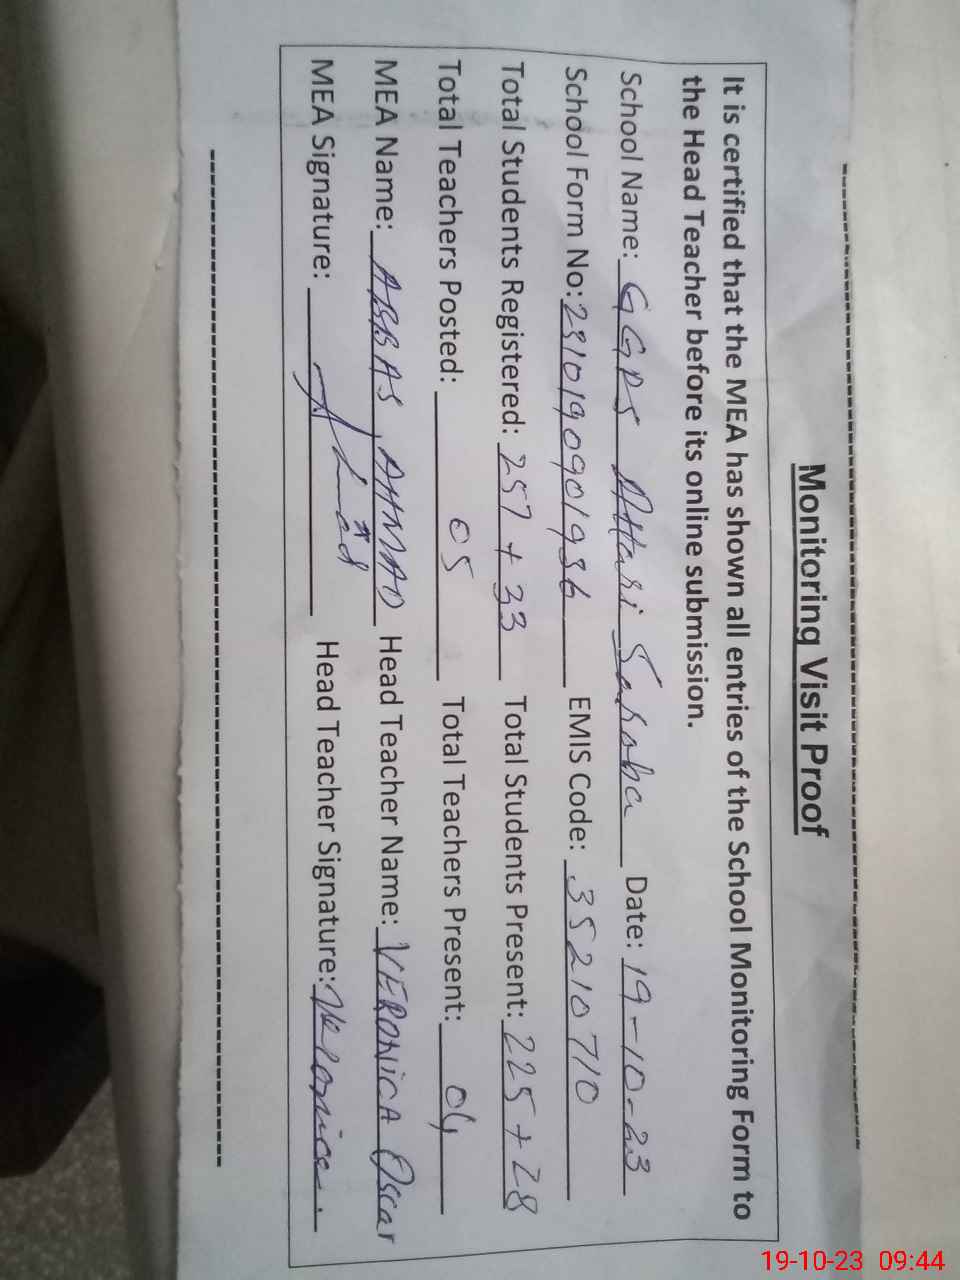 Monitoring Visit Proof
It is certified that the MEA has shown all entries of the School Monitoring Form to
the Head Teacher before its online submission.
School Name: GGPS Attari Saroba Date: 19-10-23
School Form No: 231019090 EMIS Code: 35210710
Total Students Registered: 257 + 33 Total Students Present: 225 + 28
Total Teachers Posted: 05 Total Teachers Present: 04
MEA Name: ABBAS AHMAD Head Teacher Name: VERONICA Oscar
MEA Signature: Head Teacher Signature: Veronica.
19-10-23 09:44